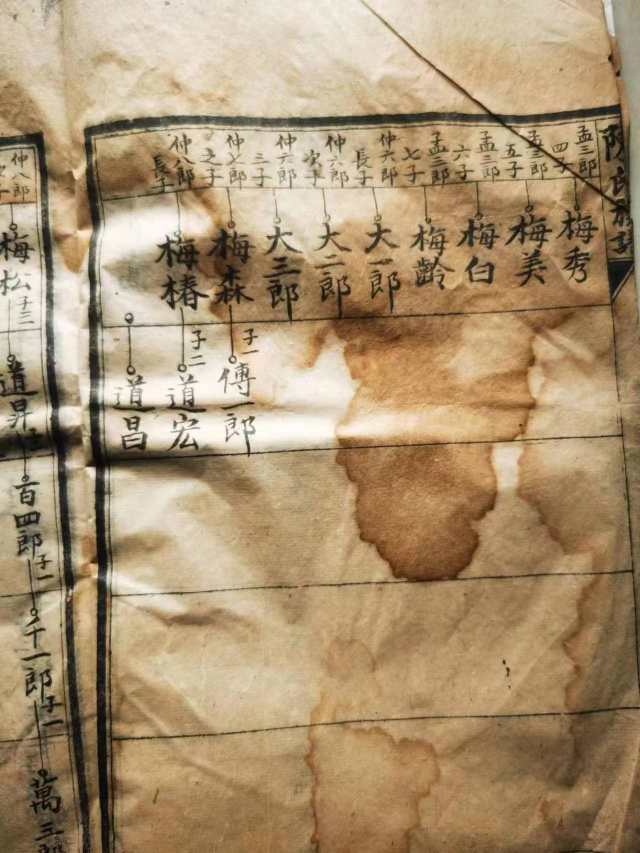 陳氏
孟三郎四子
梅秀
孟三郎五子
梅美
孟三郎六子
梅白
孟三郎七子
梅齡
仲六郎長子
大一郎
仲六郎次子
大二郎
仲六郎三子
大三郎
仲七郎之子
梅森
子一
傳一郎
仲八郎長子
梅椿
子二
道宏
道昌
仲八郎次子
梅松
子三
道昇
百四郎
子一
千一郎
子一
萬三郎